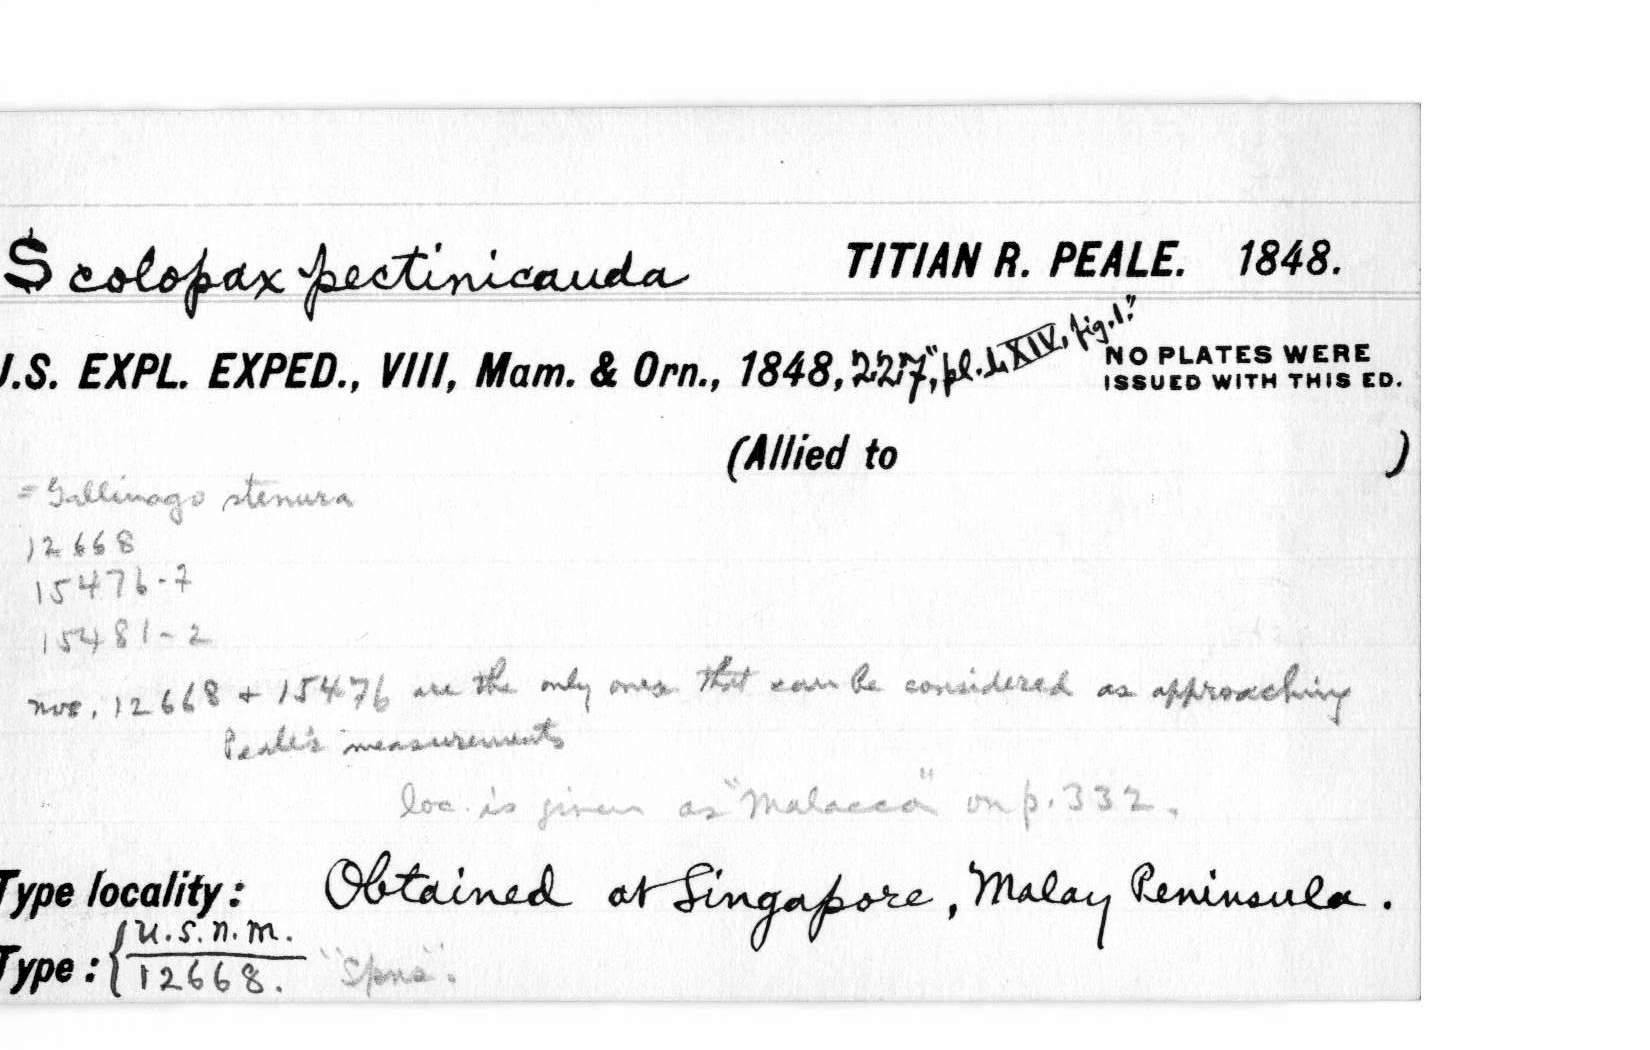 Scolopax pectinicauda TITIAN R. PEALE. 1848.
U.S. EXPL. EXPED., VIII, Mam. & Orn., 1848, 227, "pl. LXIV, fig. 1." NO PLATES WERE
ISSUED WITH THIS ED.
(Allied to )
= Gallinago stenura
12668
15476-7
15481-2
nos. 12668 + 15476 are the only ones that can be considered as approaching
Peale's measurements
loc. is given as "Malacca" on p. 332.
Type locality: Obtained at Singapore, Malay Peninsula.
Type: { U.S.N.M.
12668. "Spns".